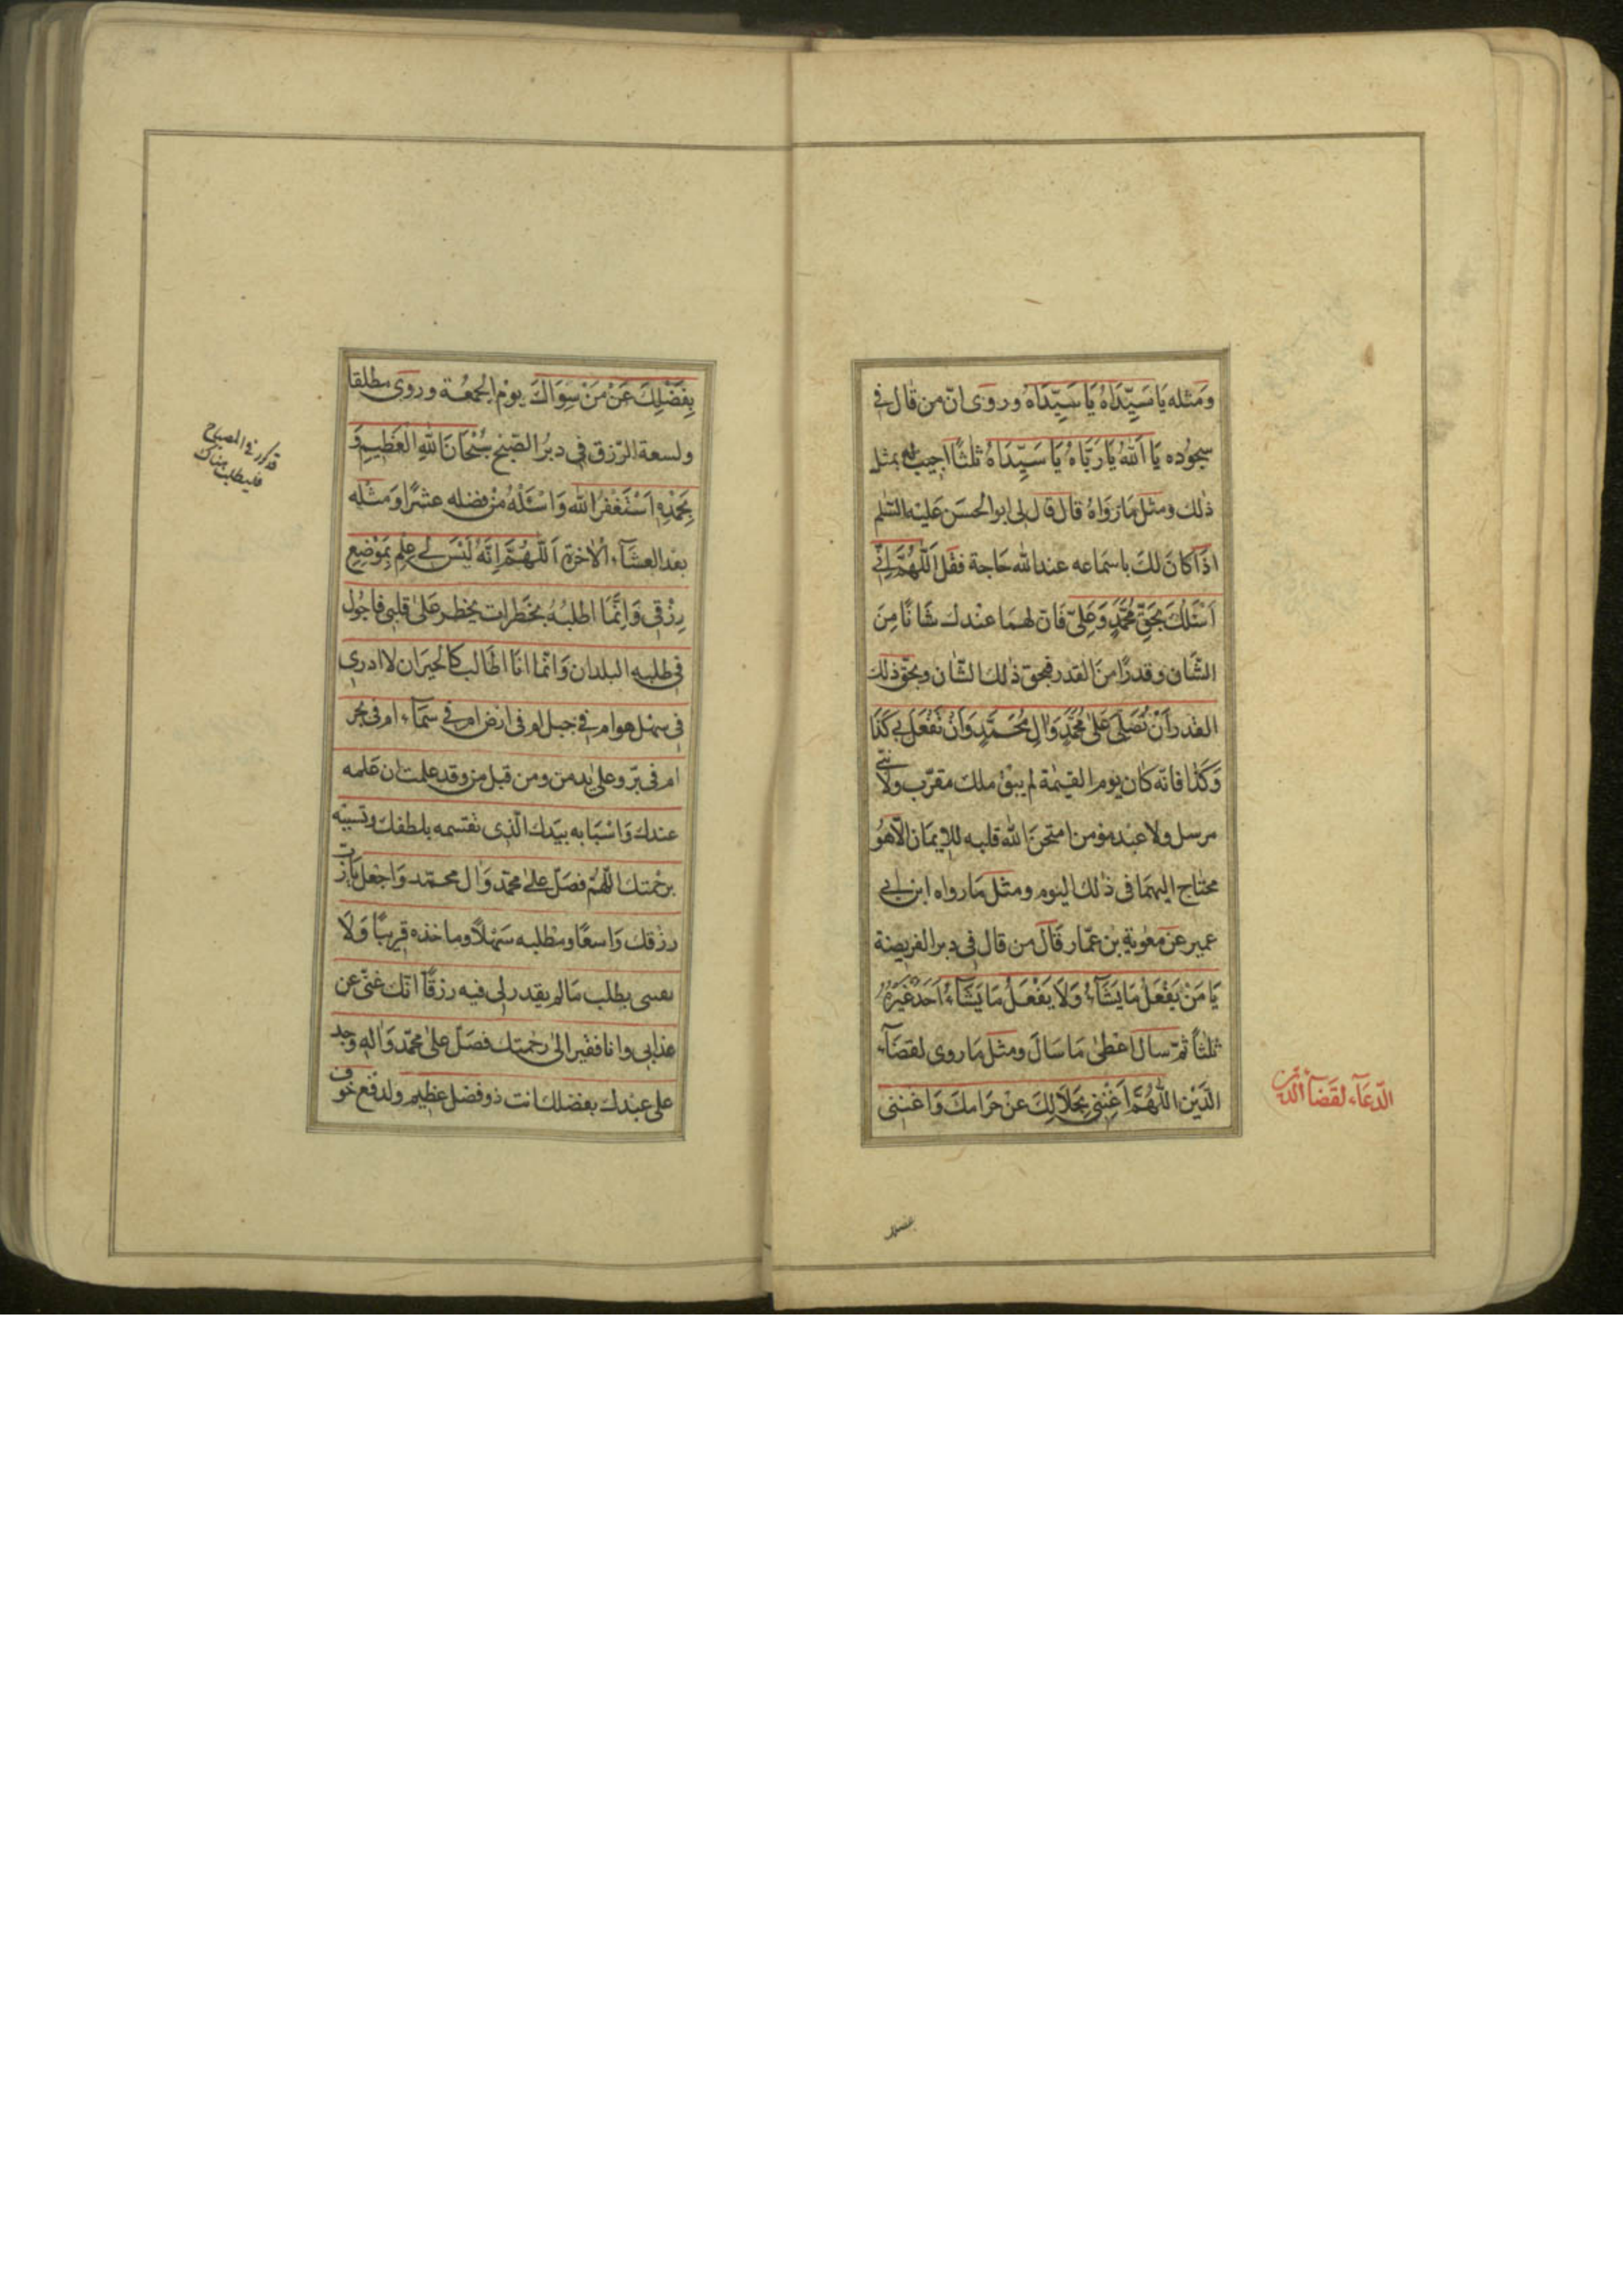 ومثله يَا سَيِّدَاهُ يَا سَيِّدَاهُ وروى انّ من قال في
سجوده يَا اَللهُ يَا رَبَّاهُ يَا سَيِّدَاهُ ثلثًا اجيب بمثل
ذلك ومثل مَا رَوَاهُ قال قال لى ابو الحسَن عَليْه السّلم
اذا كانَ لكَ يا سمَاعه عند الله حَاجة فقل اَللّهُمَّ اِنّي
اَسْئَلُكَ بِحَقِّ مُحَمَّدٍ وَعَلِىّ فَانّ لهمَا عنْدكَ شَانًا مِنَ
الشّان وقدرًا مِنَ القدر فبحق ذٰلكَ الشّان وبحقّ ذلك
القدر اَنْ تُصَلِّىَ عَلىٰ مُحَمَّدٍ وَآلِ مُحَمَّدٍ وَاَنْ تَفْعَلَ بى كَذَا
وَكَذَا فانّه كان يوم القيٰمة لم يبق ملك مقرّب ولا نبىّ
مرسل ولا عبْد مؤمن امتحنَ الله قلبه للايمَان الّا هُوَ
محتاج اليهمَا فى ذٰلك اليوم ومثل مَا رواه ابن ابى
عمير عن معٰوية بن عمّار قَالَ من قال فى دبر الفريضة
يَا مَنْ يَفْعَلُ مَا يَشَآءُ وَلَا يَفْعَلُ مَا يَشَآءُ اَحَدٌ غَيْرُهُ
ثلثًا ثمّ سال اعْطىٰ مَا سَالَ ومثل مَا روى لقضَآء
الدَّيْن اللّٰهُمَّ اَغْنِنى بِحَلَالِكَ عَنْ حَرَامِكَ وَاغْنِنى
الدّعَآء لقضَآء الدّين
بفضلك
بِفَضْلِكَ عَنْ مَنْ سِوَاكَ يوْم الجمُعَة وروى مطلقا
ولسعة الرّزق فى دبُر الصّبح سُبْحَانَ اللهِ الْعَظِيمِ وَ
بِحَمْدِهِ اَسْتَغْفِرُ اللهَ وَاسْئَلُهُ مِنْ فضله عشرًا وَمثْله
بعْد العشَآء الْاخرة اَللّٰهُمَّ اِنَّهُ لَيْسَ لى عِلم بِمَوْضِع
رِزْقى وَاِنَّمَا اطلبُهُ بخَطرات يخطر عَلىٰ قلبى فاجُول
فى طلبه البلدان وَانّما انَا الطالب كالْحَيرَان لا ادرى
فى سهْل هو ام فى جبل ام فى ارض ام فى سمَآء ام فى بحر
ام فى برّ وعلى يد من ومن قبل من وقد علمت ان علمه
عندكَ وَاسْبَابه بيَدك الّذى تقسمه بلطفك وتسبّبه
برحْمتك اللّٰهُمّ فصَلّ علىٰ محمّد وَآل محمّد وَاجْعَل يا ربّ
رزقك وَاسعًا ومطلبه سَهْلًا وماخذه قريبًا وَلَا
تعنّنى بطلب مَا لم يقدر لى فيه رزقًا انّك غنىّ عن
عذابى وانا فقير الىٰ رحْمتك فصَلّ علىٰ محمّد وَاٰله وجد
على عبْدك بفضلك انت ذو فضل عظيم ولدفع خوف
قد كرر فى المصباح
فليطلب هناك